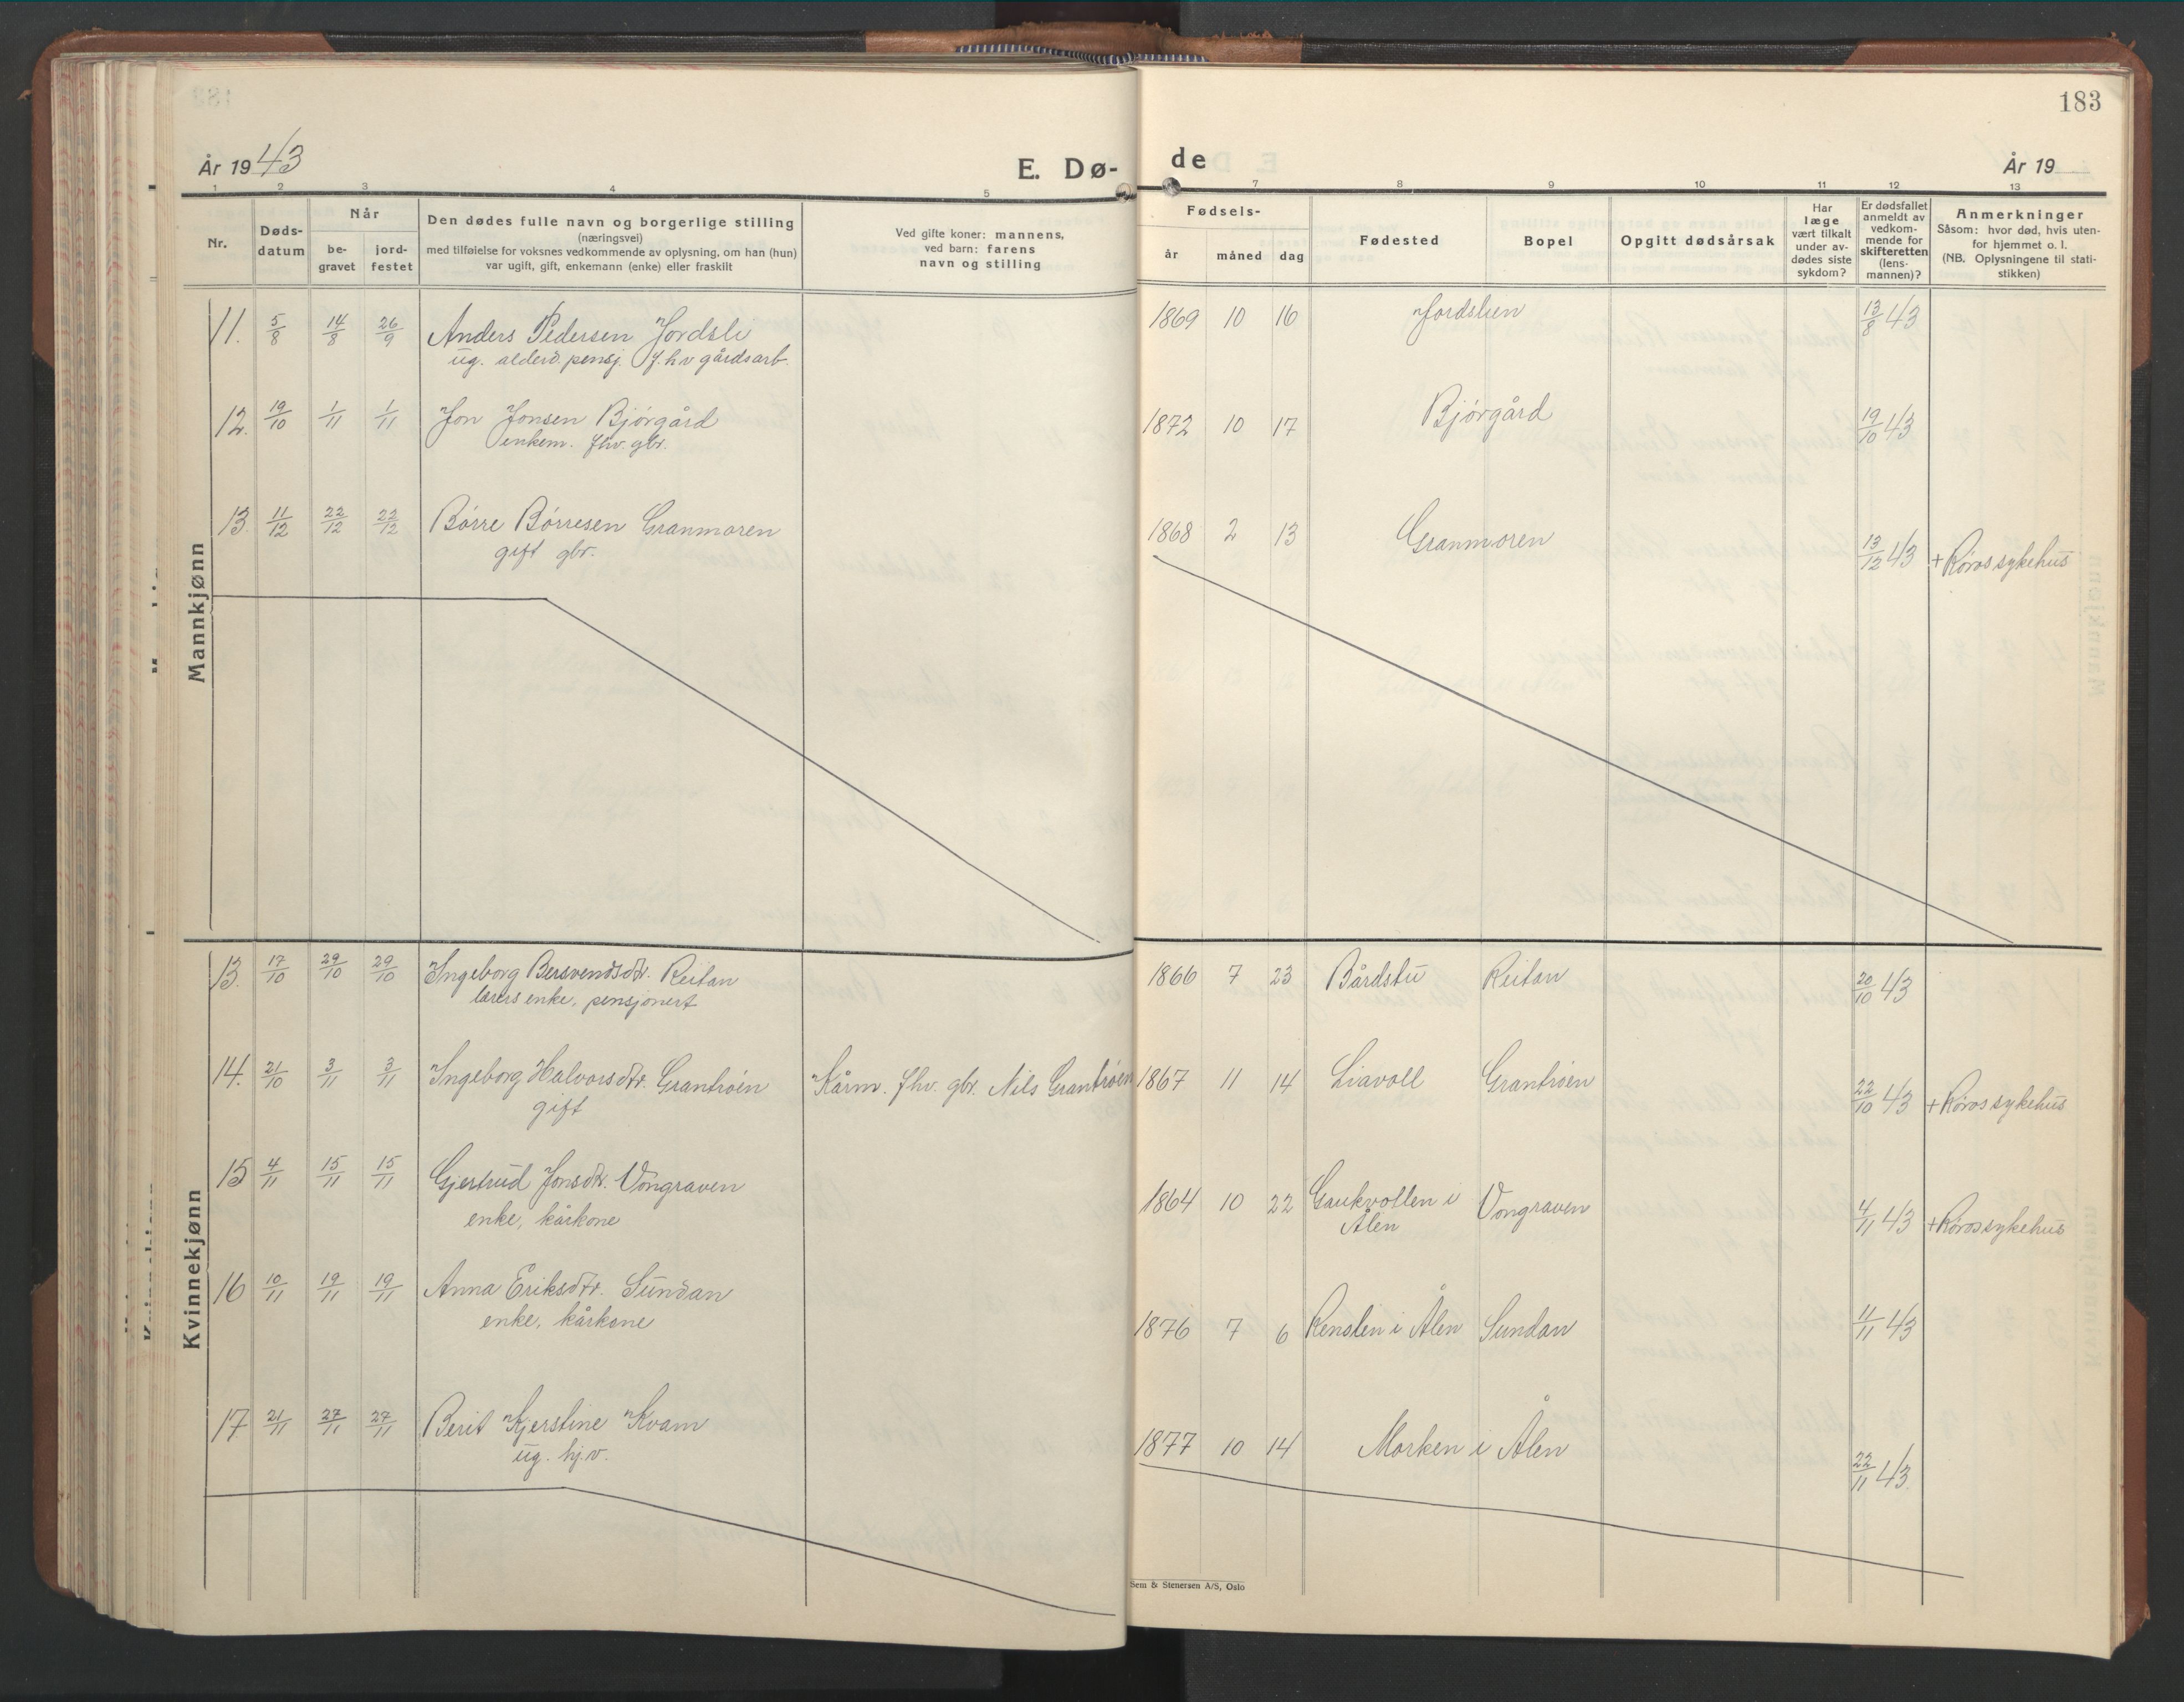 183
År 1943
E. Dø-
de
År 19
1 2 3 4 5 7 8 9 10 11 12 13
Nr.
Døds-
datum
Når
be-
gravet
jord-
festet
Den dødes fulle navn og borgerlige stilling
(næringsvei)
med tilføielse for voksnes vedkommende av oplysning, om han (hun)
var ugift, gift, enkemann (enke) eller fraskilt
Ved gifte koner: mannens,
ved barn: farens
navn og stilling
Fødsels-
år måned dag
Fødested
Bopel
Opgitt dødsårsak
Har
læge
vært tilkalt
under av-
dødes siste
sykdom?
Er dødsfallet
anmeldt av
vedkom-
mende for
skifteretten
(lens-
mannen)?
Anmerkninger
Såsom: hvor død, hvis uten-
for hjemmet o. l.
(NB. Oplysningene til stati-
stikken)
Mannkjønn
11. 5/8 14/8 26/9 Anders Pedersen Jordsli 1869 10 16 Jordslien 13/8 43
ug. alderd. pensj. f.hv gårdsarb.
12. 19/10 1/11 1/11 Jon Jonsen Bjørgård 1872 10 17 Bjørgård 19/10 43
enkem. fhv. gbr.
13. 11/12 22/12 22/12 Børre Børresen Granmoren 1868 2 13 Granmoren 13/12 43 + Røros sykehus
gift gbr.
Kvinnekjønn
13. 17/10 29/10 29/10 Ingeborg Bersvendsdtr. Reitan 1866 7 23 Bårdstu Reitan 20/10 43
lærers enke, pensjonert
14. 21/10 3/11 3/11 Ingeborg Halvorsdtr. Grantrøen Kårm. fhv. gbr. Nils Grantrøen 1867 11 14 Liavoll Grantrøen 22/10 43 + Røros sykehus
gift
15 4/11 15/11 15/11 Gjertrud Jonsdtr. Vongraven 1864 10 22 Gaukvollen i Vongraven 4/11 43 + Røros sykehus
enke, kårkone Ålen
16 10/11 19/11 19/11 Anna Eriksdtr. Sundan 1876 7 6 Renslen i Ålen Sundan 11/11 43
enke, kårkone
17 21/11 27/11 27/11 Berit Kjerstine Kvam 1877 10 14 Morken i Ålen 22/11 43
ug. hj.v.
Sem & Stenersen A/S, Oslo